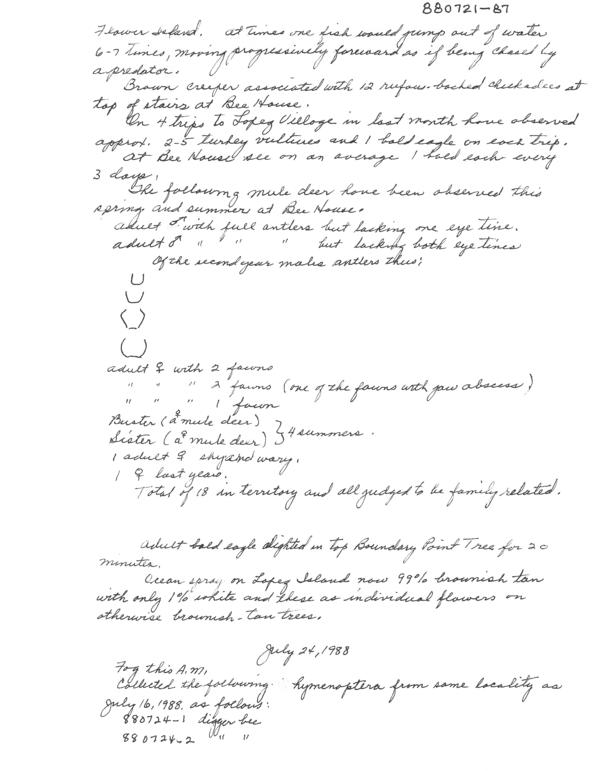 880721-87
Flower Island. At times one fish would jump out of water
6-7 times, moving progressively foreward as if being chased by
a predator.
Brown creeper associated with 12 rufous-backed chickadees at
top of stairs at Bee House.
On 4 trips to Lopez Village in last month have observed
approx. 2-5 turkey vultures and 1 bald eagle on each trip.
At Bee House see on an average 1 bird each every
3 days.
The following mule deer have been observed this
spring and summer at Bee House.
adult ♂ with full antlers but lacking one eye tine.
adult ♂ " " " but lacking both eye tines
Of the second year males antlers thus;
adult ♀ with 2 fawns
" " " 2 fawns (one of the fawns with jaw abscess)
" " " 1 fawn
Buster (a ♀ mule deer)
Sister (a ♀ mule deer) } 4 summers.
1 adult ♀ shy and wary.
1 ♀ last years.
Total of 18 in territory and all judged to be family related.
Adult bald eagle alighted in top Boundary Point Tree for 20
minutes.
Ocean spray on Lopez Island now 99% brownish tan
with only 1% white and these as individual flowers on
otherwise brownish-tan trees.
July 24, 1988
Fog this A.M.
Collected the following hymenoptera from same locality as
July 16, 1988 as follows:
880724-1 digger bee
880724-2 " "